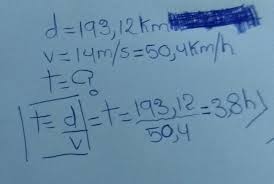 d = 193,12km
v = 14m/s = 50,4km/h
t = ?
t = d/v = t = 193,12/50,4 = 3,8h